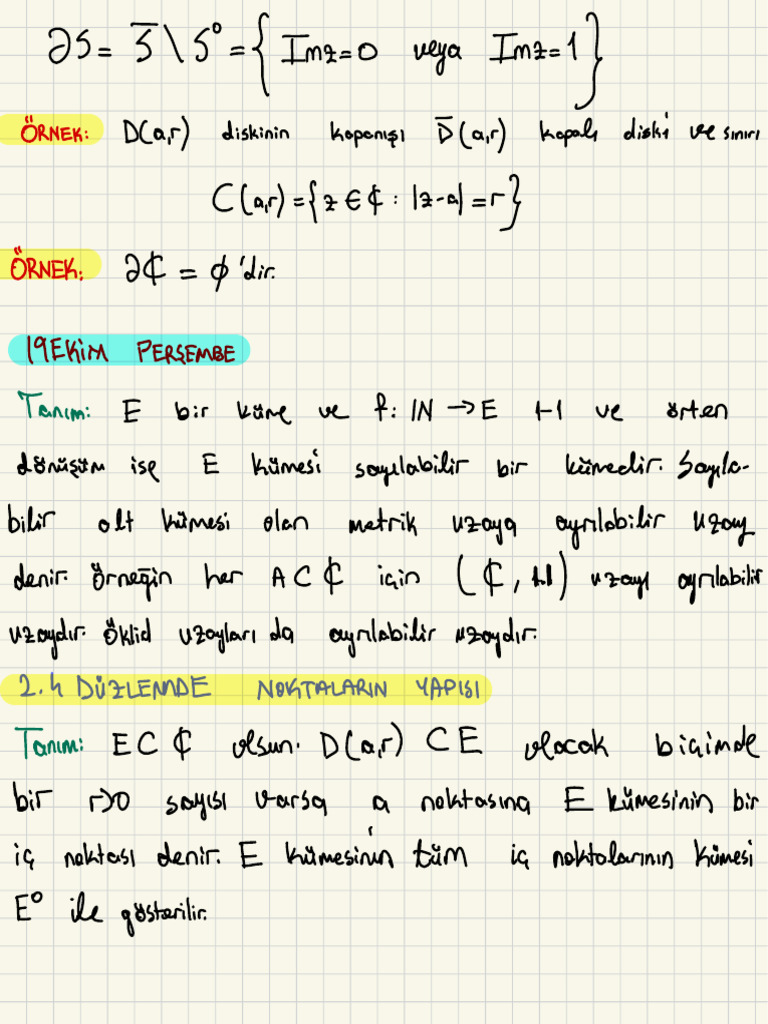 ∂S = S̅ \ S° = { Imz=0 veya Imz=1 }
ÖRNEK: D(a,r) diskinin kapanışı D̅(a,r) kapalı diski ve sınırı
C(a,r) = { z ∈ ℂ : |z-a| = r }
ÖRNEK: ∂ℂ = ∅'dir.
19 EKİM PERŞEMBE
Tanım: E bir küme ve f: IN → E 1-1 ve örten
dönüşüm ise E kümesi sayılabilir bir kümedir. Sayıla-
bilir alt kümesi olan metrik uzaya ayrılabilir uzay
denir. Örneğin her A ⊂ ℂ için (ℂ, |.|) uzayı ayrılabilir
uzaydır. Öklid uzayları da ayrılabilir uzaydır.
2.4 DÜZLEMDE NOKTALARIN YAPISI
Tanım: E ⊂ ℂ olsun. D(a,r) ⊂ E olacak biçimde
bir r>0 sayısı varsa a noktasına E kümesinin bir
iç noktası denir. E kümesinin tüm iç noktalarının kümesi
E° ile gösterilir.